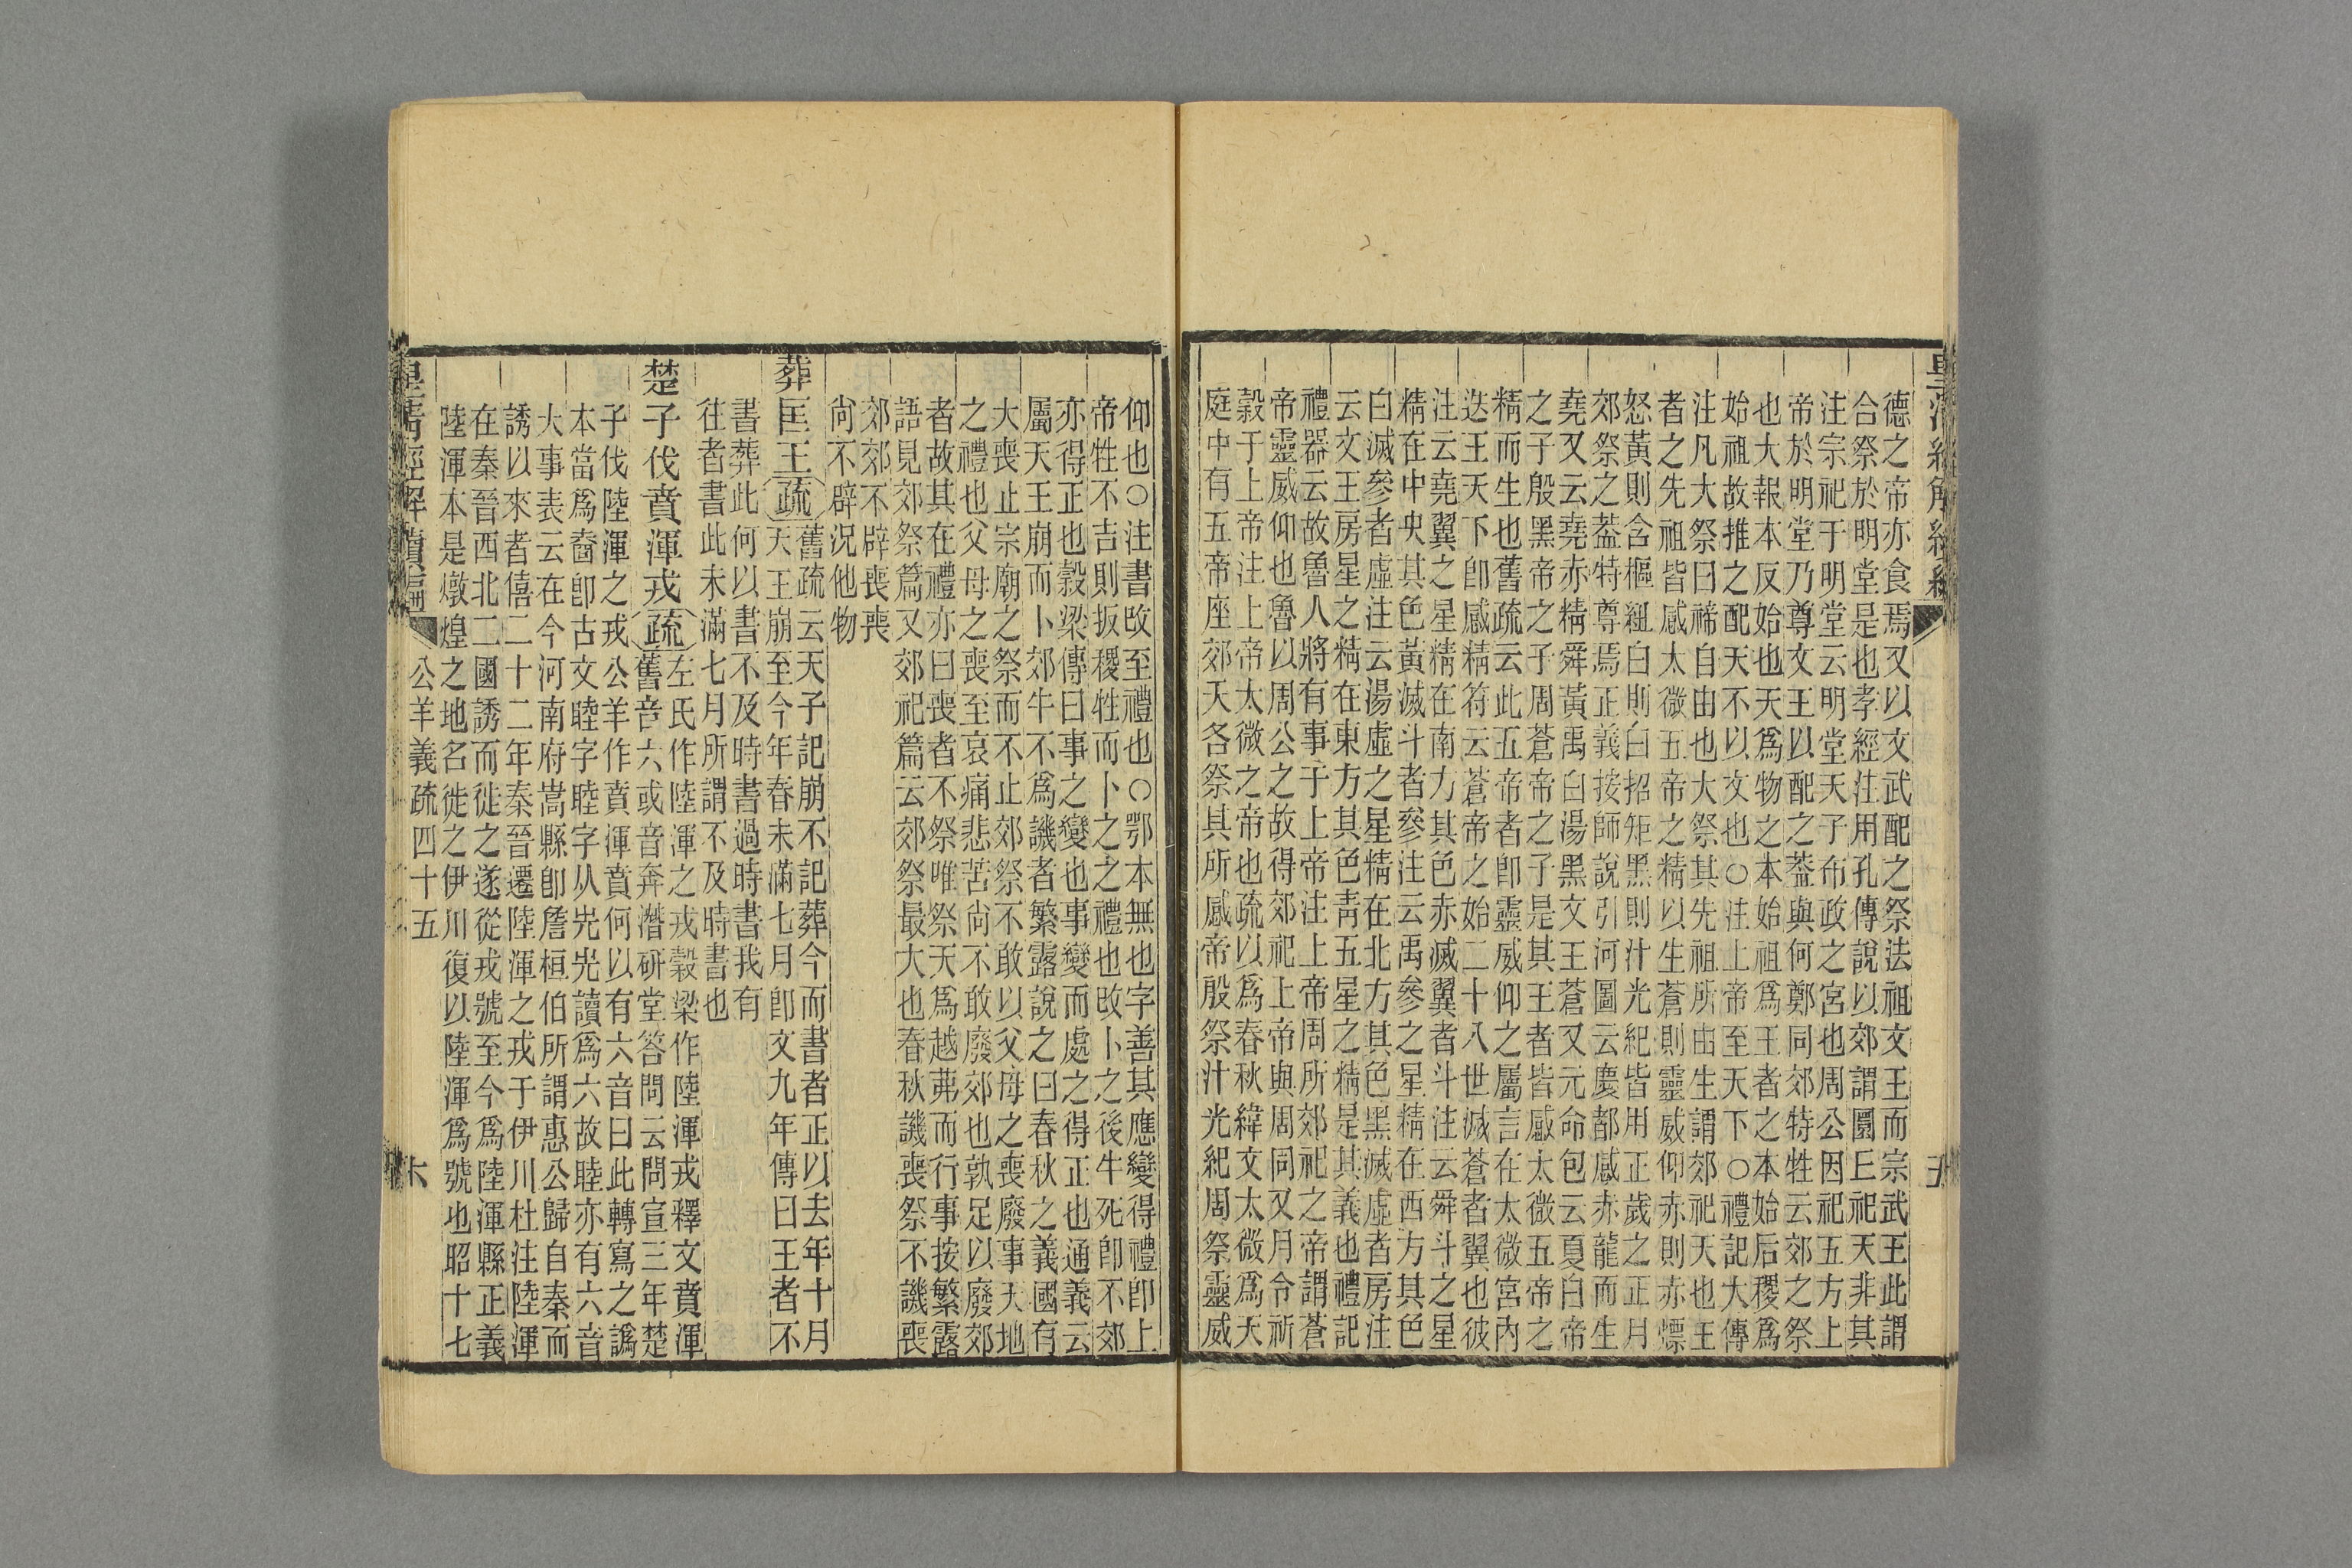 德之帝亦食焉又以文武配之祭法祖文王而宗武王此謂
合祭於明堂是也孝經注用孔傳說以郊謂圜丘祀天非其
注宗祀于明堂云明堂天子布政之宮也周公因祀五方上
帝於明堂乃尊文王以配之葢與何鄭同郊特牲云郊之祭
也大報本反始也天爲物之本始祖爲王者之本始后稷爲
始祖故推之配天不以文也○注上帝至天下○禮記大傳
注凡大祭曰禘自由也大祭其先祖所由生謂郊祀天也王
者之先祖皆感太微五帝之精以生蒼則靈威仰赤則赤熛
怒黃則含樞紐白則白招矩黑則汁光紀皆用正歲之正月
郊祭之葢特尊焉正義按師說引河圖云慶都感赤龍而生
堯又云堯赤精舜黃禹白湯黑文王蒼又元命包云夏白帝
之子殷黑帝之子周蒼帝之子是其王者皆感太微五帝之
精而生也舊疏云此五帝者卽靈威仰之屬言在太微宮內
迭王天下卽感精符云蒼帝之始二十八世滅蒼者翼也彼
注云堯翼之星精在南方其色赤滅翼者斗注云舜斗之星
精在中央其色黃滅斗者參注云禹參之星精在西方其色
白滅參者虛注云湯虛之星精在北方其色黑滅虛者房注
云文王房星之精在東方其色靑五星之精是其義也禮記
禮器云故魯人將有事于上帝注上帝周所郊祀之帝謂蒼
帝靈威仰也魯以周公之故得郊祀上帝與周同又月令祈
穀于上帝注上帝太微之帝也疏以爲春秋緯文太微爲天
庭中有五帝座郊天各祭其所感帝殷祭汁光紀周祭靈威
仰也○注書改至禮也○鄂本無也字善其應變得禮卽上
帝牲不吉則扳稷牲而卜之之禮也改卜之後牛死卽不郊
亦得正也穀梁傳曰事之變也事變而處之得正也通義云
屬天王崩而卜郊牛不爲譏者繁露說之曰春秋之義國有
大喪止宗廟之祭而不止郊祭不敢以父母之喪廢事天地
之禮也父母之喪至哀痛悲苦尙不敢廢郊也孰足以廢郊
者故其在禮亦曰喪者不祭唯祭天爲越茀而行事按繁露
語見郊祭篇又郊祀篇云郊祭最大也春秋譏喪祭不譏喪
郊郊不辟喪喪
尙不辟況他物
葬匡王疏舊疏云天子記崩不記葬今而書者正以去年十月
天王崩至今年春未滿七月卽文九年傳曰王者不
書葬此何以書不及時書過時書我有
往者書此未滿七月所謂不及時書也
楚子伐賁渾戎疏左氏作陸渾之戎穀梁作陸渾戎釋文賁渾
舊音六或音奔潛研堂答問云問宣三年楚
子伐陸渾之戎公羊作賁渾賁何以有六音曰此轉寫之譌
本當爲䘸卽古文睦字睦字从先先讀爲六故睦亦有六音
大事表云在今河南府嵩縣卽詹桓伯所謂惠公歸自秦而
誘以來者僖二十二年秦晉遷陸渾之戎于伊川杜注陸渾
在秦晉西北二國誘而徙之遂從戎號至今爲陸渾縣正義
陸渾本是燉煌之地名徙之伊川復以陸渾爲號也昭十七
皇淸經解續編
公羊義疏四十五